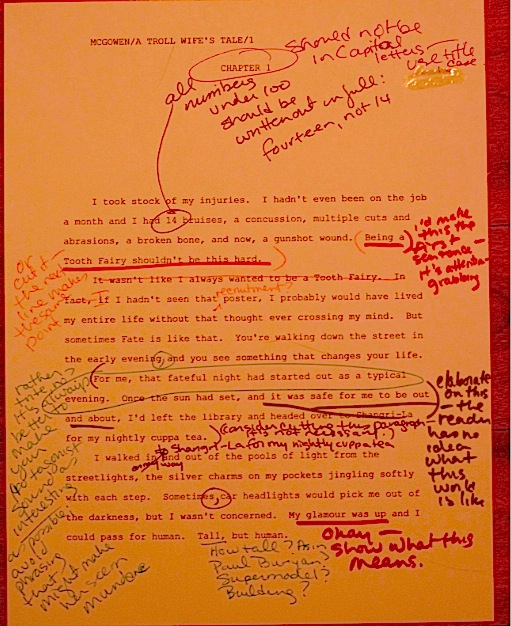 MCGOWEN/A TROLL WIFE'S TALE/1
CHAPTER 1
should not be
in Capital
letters -
use title
case.
all
numbers
under 100
should be
written out in full:
fourteen, not 14
I took stock of my injuries. I hadn't even been on the job
a month and I had 14 bruises, a concussion, multiple cuts and
abrasions, a broken bone, and now, a gunshot wound. Being a
Tooth Fairy shouldn't be this hard.
I'd make
this the
first
sentence -
it's attention-
grabbing
or
cut -
the next
line makes
the same
point
It wasn't like I always wanted to be a Tooth Fairy. In
fact, if I hadn't seen that poster, I probably would have lived
recruitment?
my entire life without that thought ever crossing my mind. But
sometimes Fate is like that. You're walking down the street in
the early evening, and you see something that changes your life.
For me, that fateful night had started out as a typical
evening. Once the sun had set, and it was safe for me to be out
and about, I'd left the library and headed over to Shangri-La
for my nightly cuppa tea.
elaborate
on this
- the
reader
has no
idea
what
this
world
is like
Consider cutting this paragraph -
it's not necessary
to Shangri-La for my nightly cuppa tea
I walked in and out of the pools of light from the
streetlights, the silver charms on my pockets jingling softly
with each step. Sometimes, car headlights would pick me out of
the darkness, but I wasn't concerned. My glamour was up and I
could pass for human. Tall, but human.
it's always
better to
make
your
protagonist
sound as
interesting
as possible
avoid
phrasing
that
might make
her seem
mundane
How tall? As in
Paul Bunyan?
Supermodel?
Building?
Okay -
show what this
means.